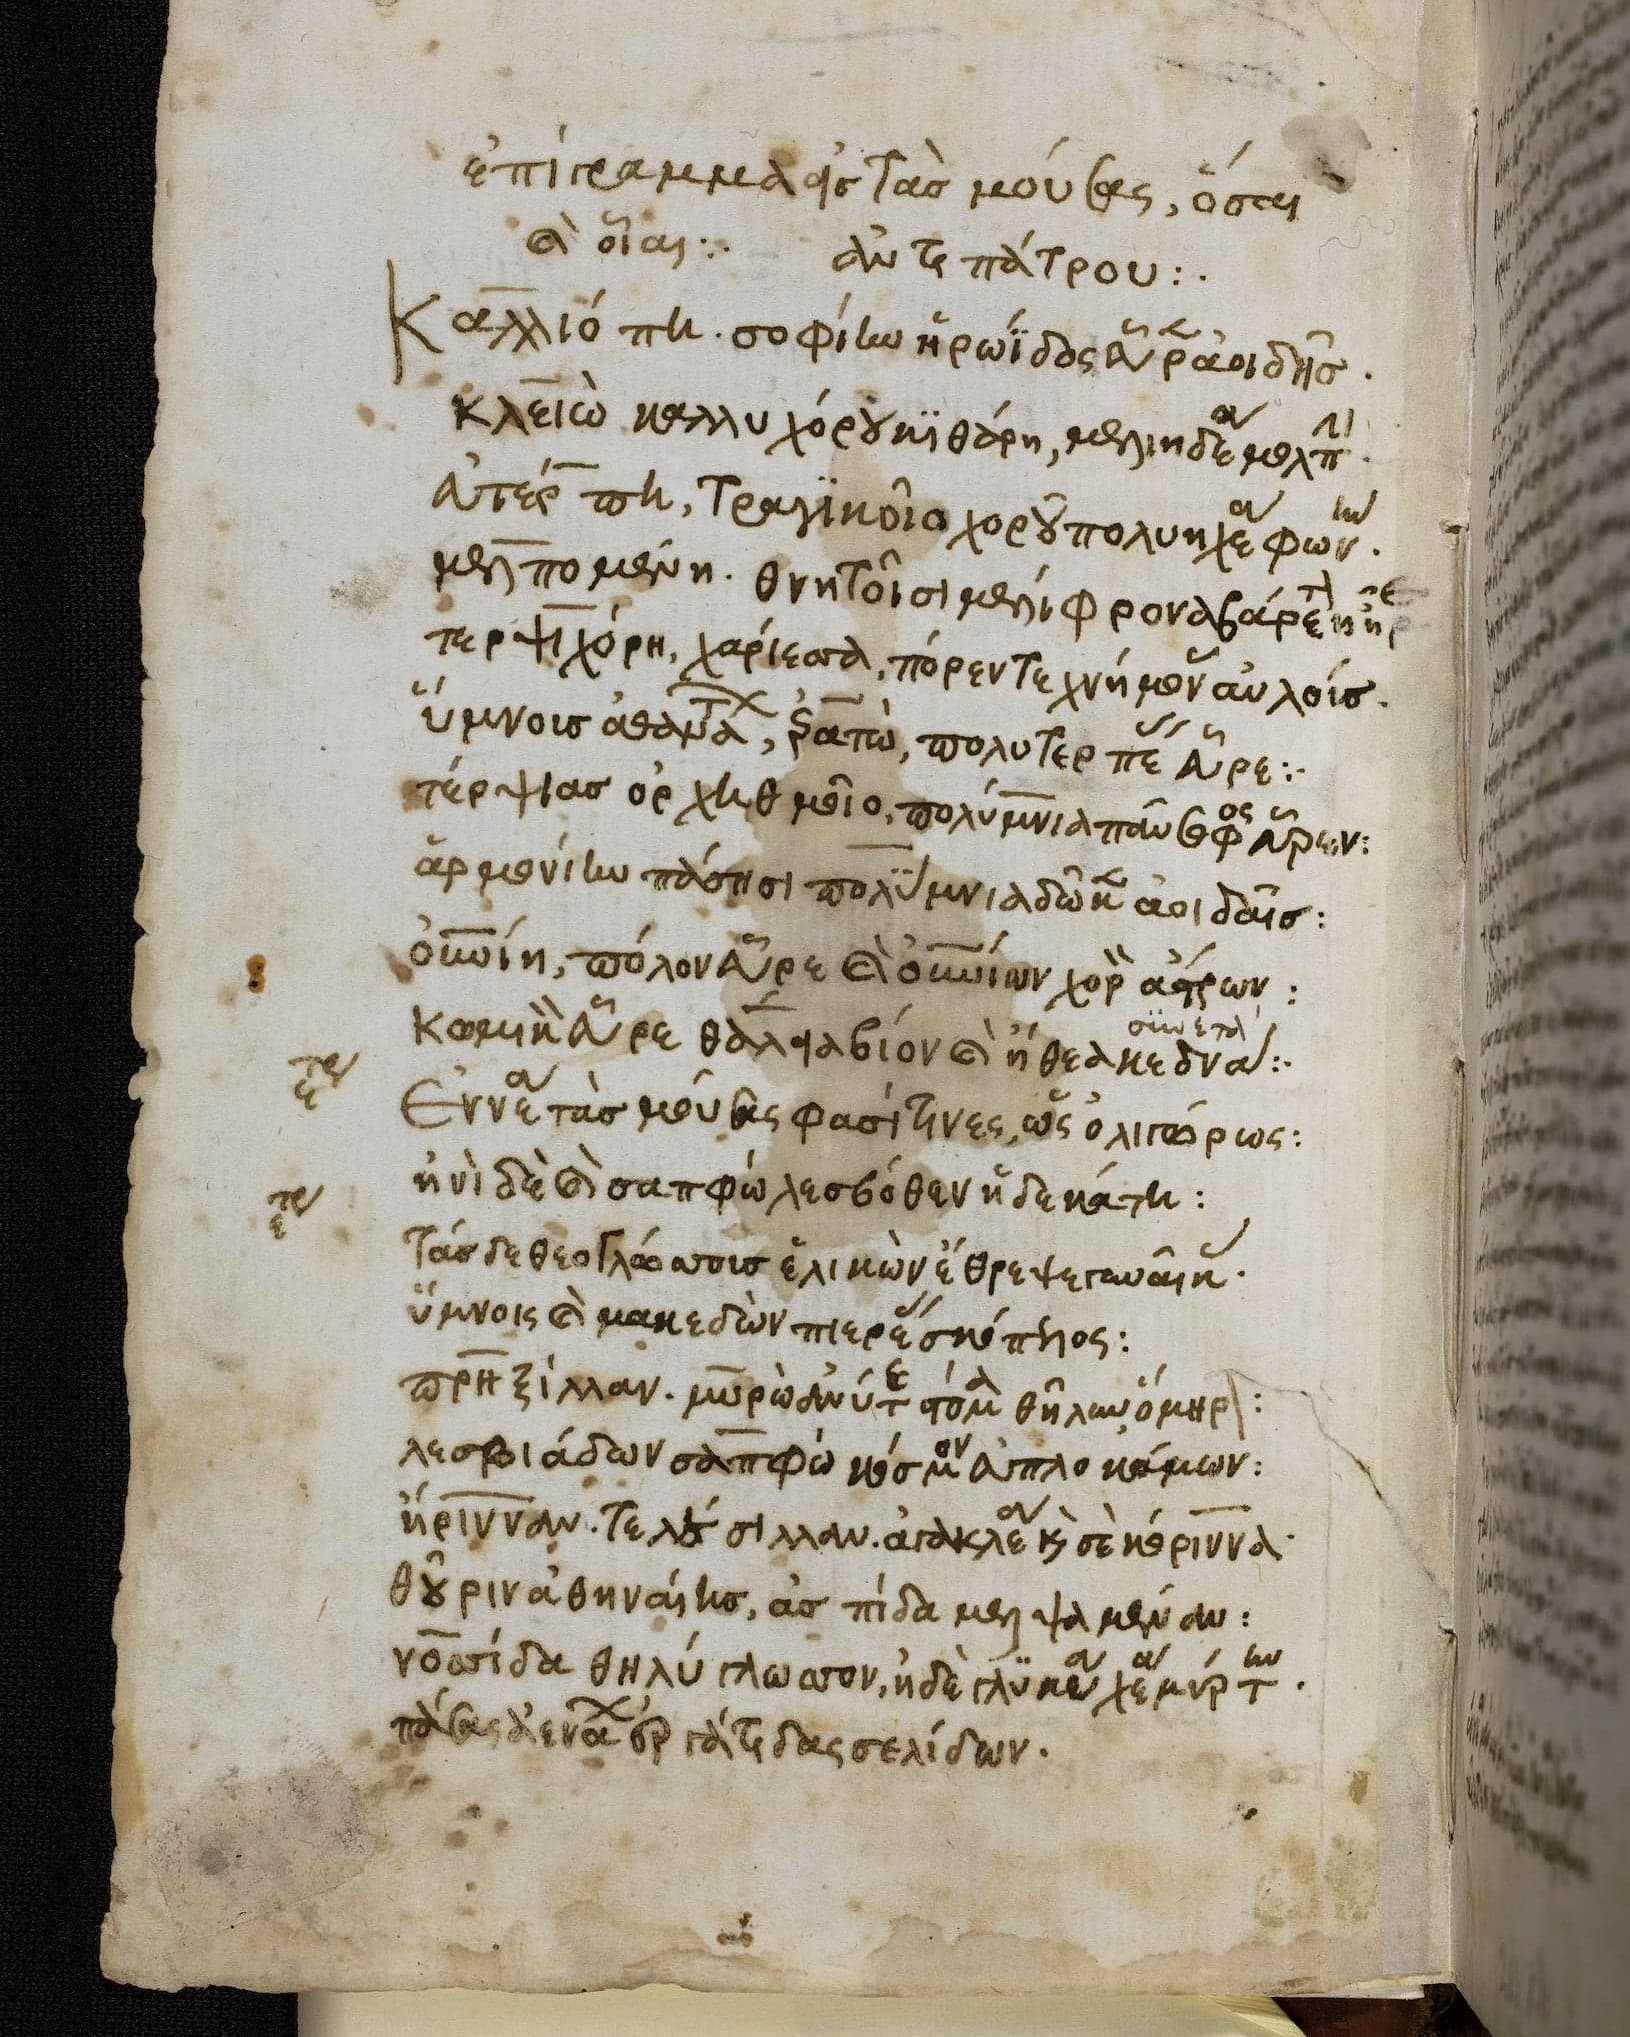 ἐπίγραμμα εἰς τὰς μούσας, ὅσαι
καὶ οἷαι:· ἀντιπάτρου:·
Καλλιόπη· σοφίην ἡρωΐδος εὗρεν ἀοιδῆς·
κλειὼ καλλυχόρου κϊθάρη, μελιηδέα μολπήν·
εὐτέρπη, τραγϊκοῖο χοροῦ πολυηχέα φωνήν·
μελπομένη· θνητοῖσι μελίφρονα βάρβιτον
τερψιχόρη, χαρίεσσα, πόρεν τεχνήμονας αὐλούς·
ὕμνους ἀθανάτων, ἐρατὼ, πολυτερπέας εὗρε:·
τέρψιας ὀρχηθμοῖο, πολύμνια πάνσοφος εὗρεν:
ἁρμονίην πάσησι πολΰμνια δῶκεν ἀοιδαῖς:
οὐρανίη, πόλον εὗρε καὶ οὐρανίων χορὸν ἄστρων:
κωμικὸν εὗρε θάλεια βίον καὶ ἤθεα κεδνά:·
Ἐννέα τὰς μούσας φασί τινες, ὡς ὀλιγώρως:
ἠνὶ δὲ καὶ σαπφὼ λεσβόθεν ἡ δεκάτη:
τάσδε θεογλώσσους ἑλικὼν ἔθρεψε γυναῖκας·
ὕμνοις καὶ μακεδὼν πιερίας σκόπελος:
πρήξιλλαν· μοιρὼ ἀνύτης στόμα θῆλυν ὅμηρον:
λεσβιάδων σαπφὼ κόσμον εὐπλοκάμων:
ἤρινναν· τελέσιλλαν· ἀγακλέα καὶ σὲ κόριννα·
θοῦριν ἀθηναίης, ἀσπίδα μελψαμέναν:
νοσσίδα θηλύγλωσσον, ἠδὲ γλϋκυαχέα μύρτην·
πάσας ἀενάων ἐργάτιδας σελίδων·